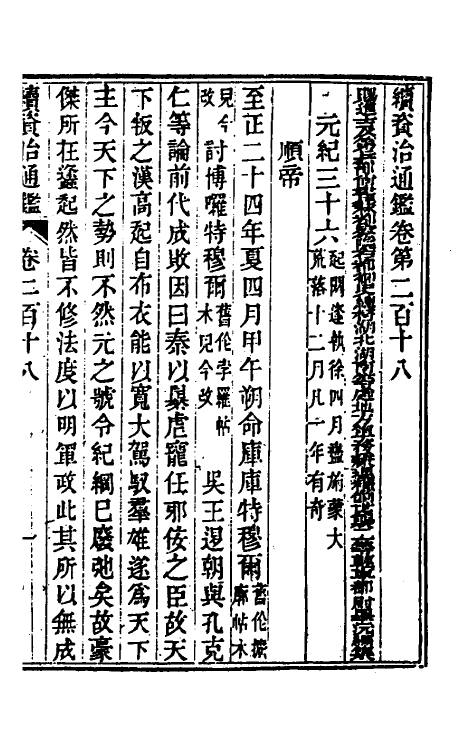 續資治通鑑卷第二百十八
元紀三十六起閼逢執徐四月盡旃蒙大荒落十二月凡一年有奇
順帝
至正二十四年夏四月甲午朔命庫庫特穆爾舊作擴廓帖木兒今改
討博囉特穆爾舊作孛羅帖木兒今改 吳王退朝與孔克
仁等論前代成敗因曰秦以暴虐寵任邪佞之臣故天
下叛之漢高起自布衣能以寬大駕馭羣雄遂爲天下
主今天下之勢則不然元之號令紀綱已廢弛矣故豪
傑所在蠭起然皆不修法度以明軍政此其所以無成
續資治通鑑 卷二百十八 一